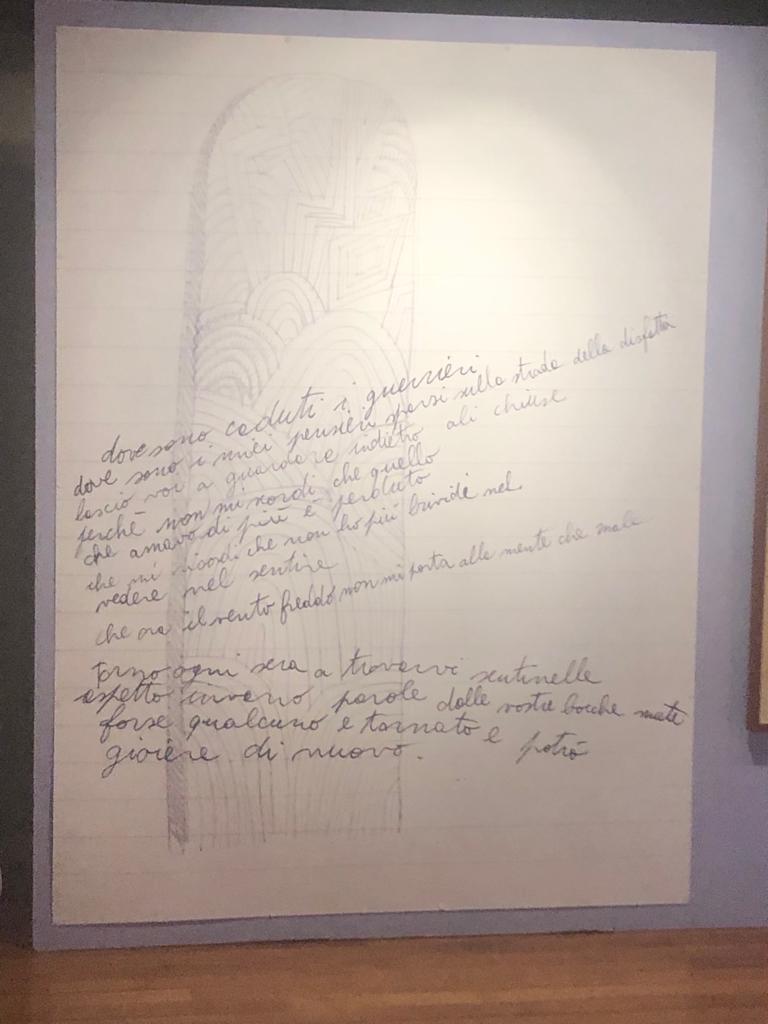 dove sono caduti i guerrieri
dove sono i miei pensieri sparsi sulla strada della disfatta
lascio voi a guardare indietro ali chiuse
perché non mi scordi che quello
che amavo di più è perduto
che mi ricordi che non ho più brividi nel
vedere nel sentire
che ora il vento freddo non mi porta alla mente che male
Torno ogni sera a trovarvi sentinelle
aspetto invano parole dalle vostre bocche mute
forse qualcuno è tornato e potrò
gioire di nuovo.